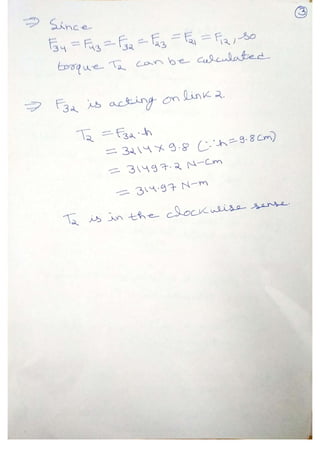 ③
⇒ Since
F₃₄ = F₄₃ = F₃₂ = F₂₃ = F₂₁ = F₁₂, so
torque T₂ can be calculated
⇒ F₃₂ is acting on link 2
T₂ = F₃₂.h
= 3214 × 9.8 (∵ h = 9.8 cm)
= 31497.2 N-cm
= 314.97 N-m
T₂ is in the clockwise sense.